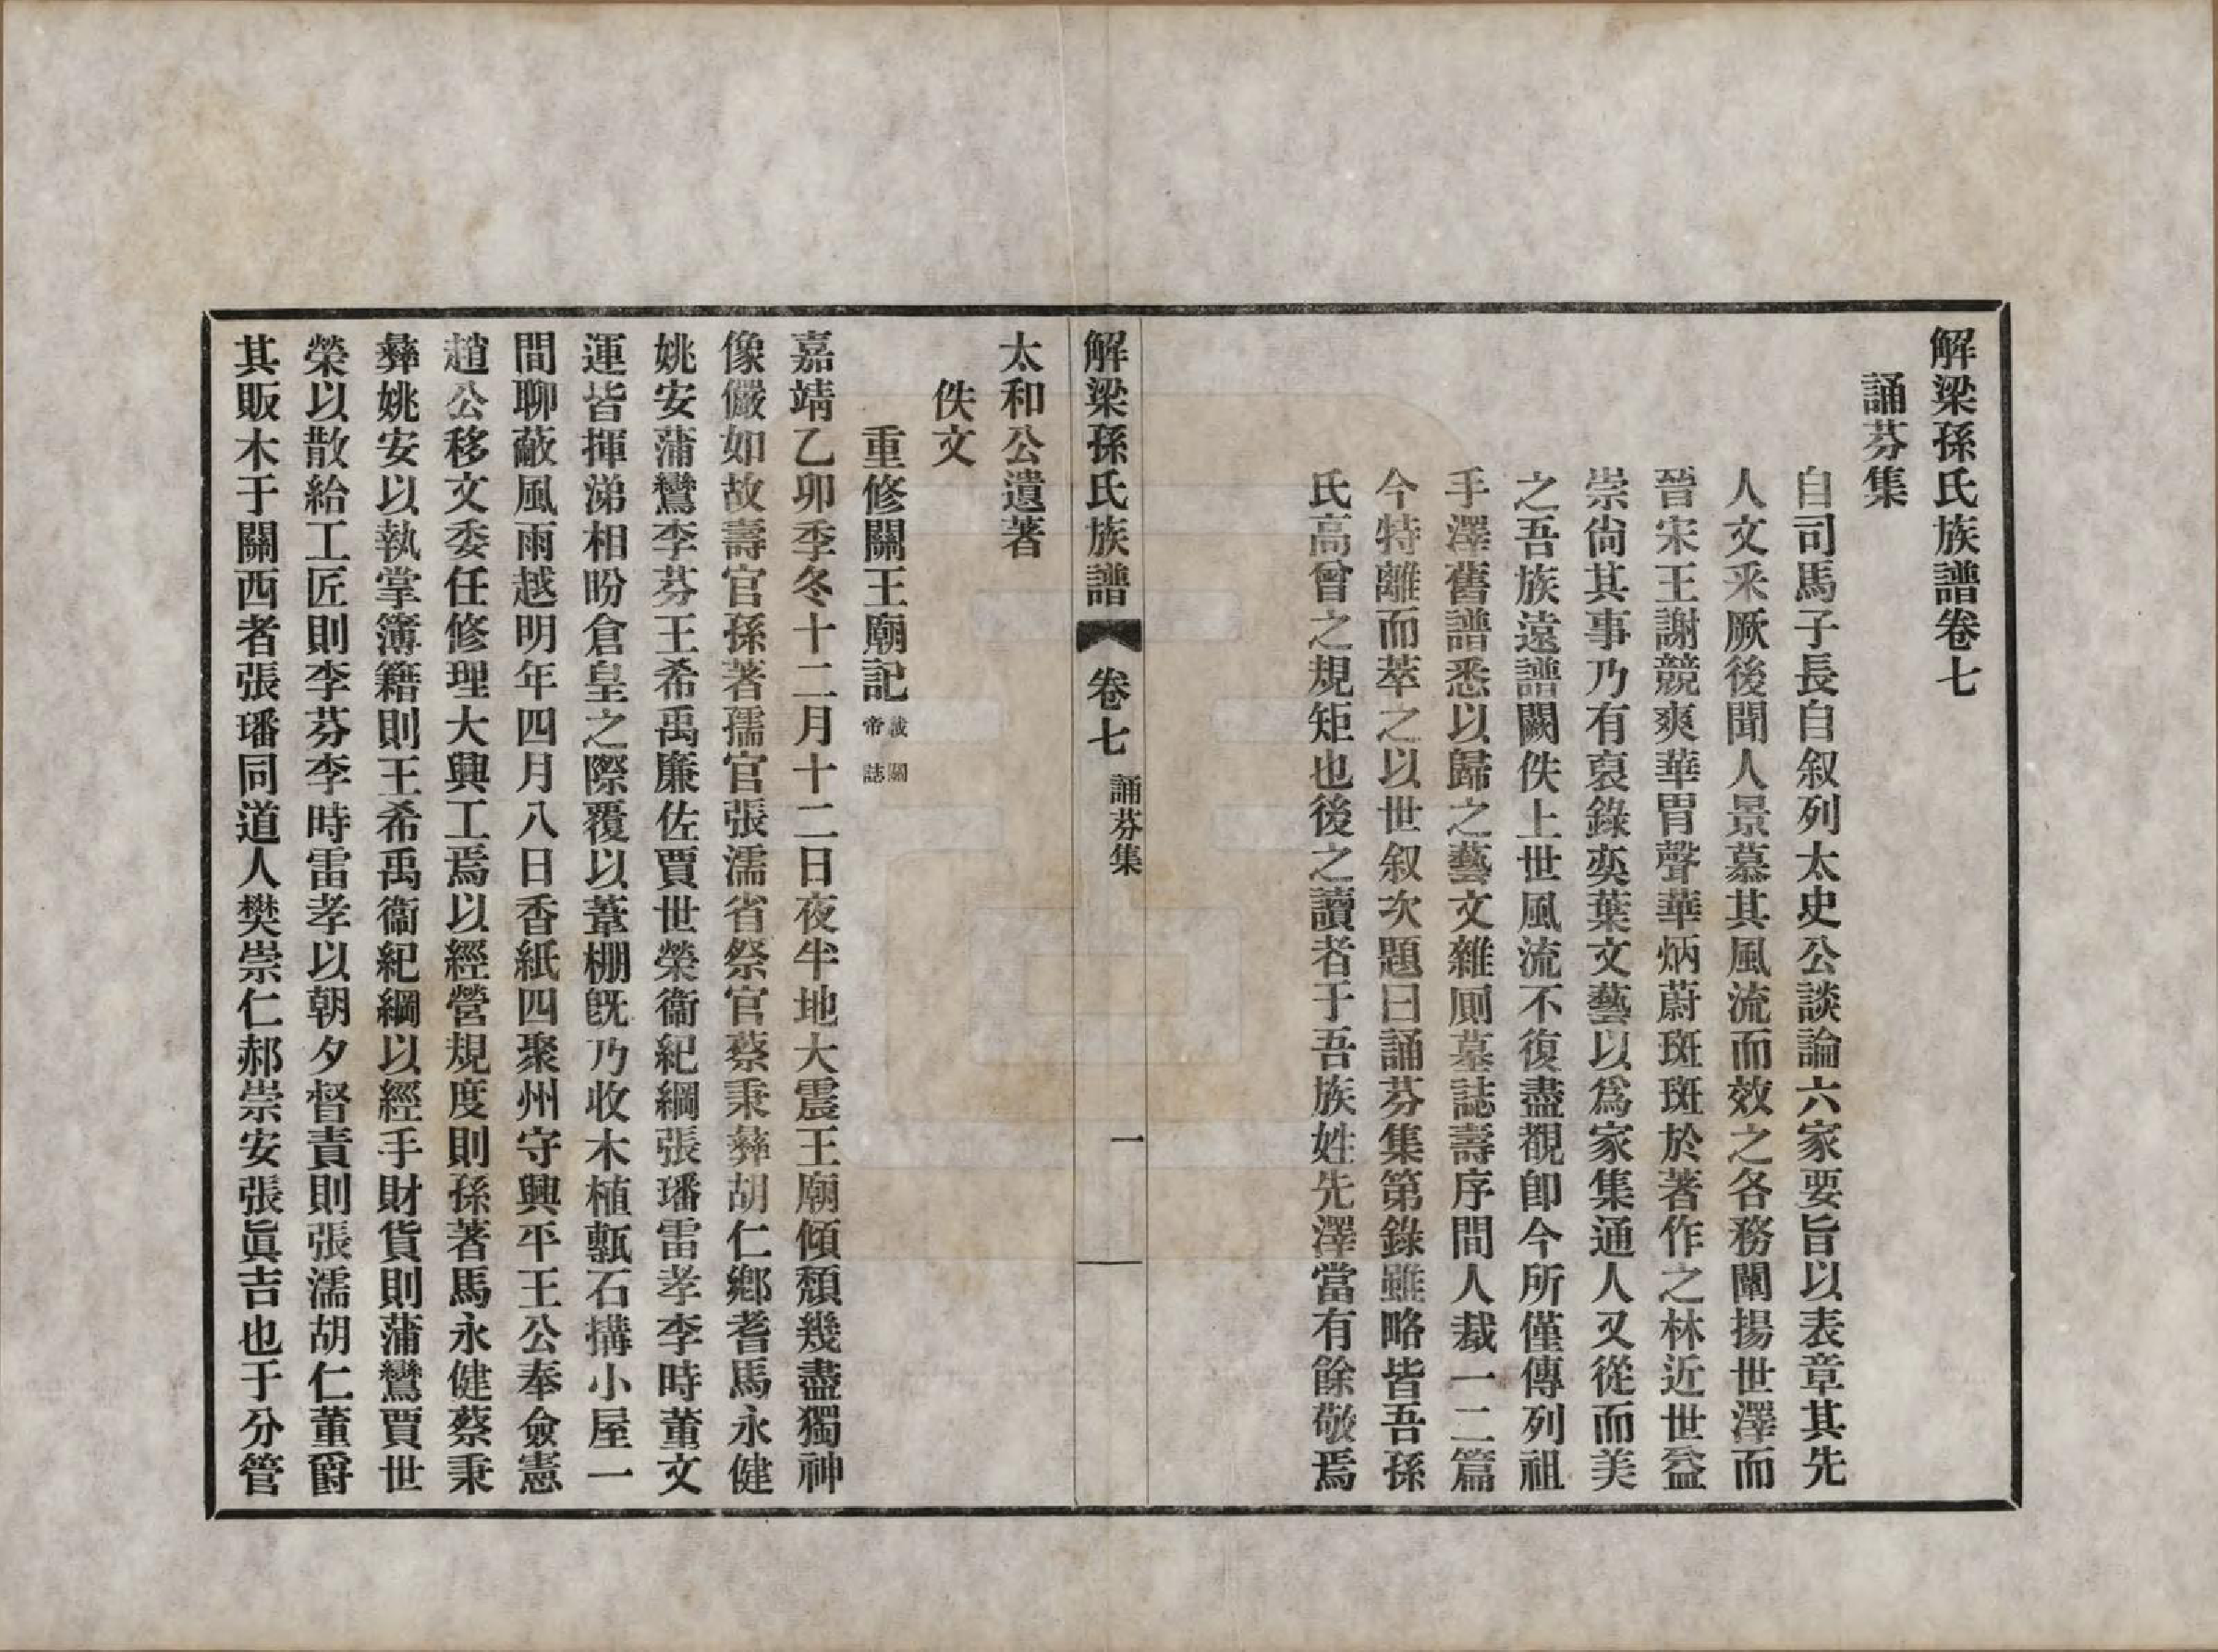 解梁孫氏族譜卷七
誦芬集
自司馬子長自叙列太史公談論六家要旨以表章其先
人文釆厥後聞人景慕其風流而效之各務闡揚世澤而
晉宋王謝競爽華胃聲華炳蔚斑斑於著作之林近世益
崇尙其事乃有裒錄奕葉文藝以爲家集通人又從而美
之吾族遠譜闕佚上世風流不復盡覩卽今所僅傳列祖
手澤舊譜悉以歸之藝文雜厠墓誌壽序間人裁一二篇
今特離而萃之以世叙次題曰誦芬集第錄雖略皆吾孫
氏高曾之規矩也後之讀者于吾族姓先澤當有餘敬焉
解梁孫氏族譜 卷七 誦芬集 一
太和公遺著
佚文
重修關王廟記 載關帝誌
嘉靖乙卯季冬十二月十二日夜半地大震王廟傾頽幾盡獨神
像儼如故壽官孫著孺官張濡省祭官蔡秉彝胡仁鄉耆馬永健
姚安蒲鸞李芬王希禹廉佐賈世榮衞紀綱張璠雷孝李時董文
運皆揮涕相盼倉皇之際覆以葦棚旣乃收木植甎石搆小屋一
間聊蔽風雨越明年四月八日香紙四聚州守興平王公奉僉憲
趙公移文委任修理大興工焉以經營規度則孫著馬永健蔡秉
彝姚安以執掌簿籍則王希禹衞紀綱以經手財貨則蒲鸞賈世
榮以散給工匠則李芬李時雷孝以朝夕督責則張濡胡仁董爵
其販木于關西者張璠同道人樊崇仁郝崇安張眞吉也于分管